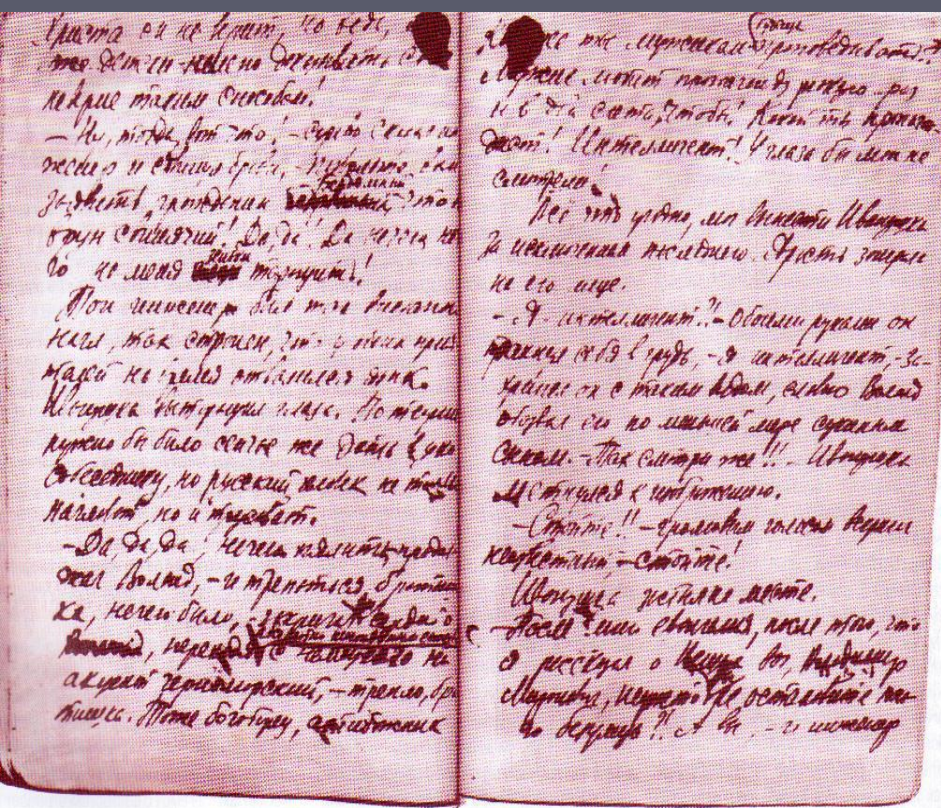 Христа он не верит, но ведь,
это детски-наивно доказывать
неверие таким способом!
– Ну, тогда вот что! – сурово сказал ин
женер и сдвинул брови, – позвольте вам
заявить, гражданин Бездомный, что
врун свинячий! Да, да! Да нечего на
меня зенки таращить!
Тон инженера был так внезапно
нагл, так странен, что у обоих прия
телей на время отвалился язык.
Иванушка вытаращил глаза. По теории
нужно бы было сейчас же дать в ухо
собеседнику, но русский человек не только
нагловат, но и трусоват.
– Да, да, да, нечего пялить, – продол
жал Воланд, – и трепаться, братиш
ка, нечего было, – закричал сердито
переходя с немецкого на
акцент черноморский, – трепло, бра
тишка. Тоже богоборец, антибожник
же ты мужикам проповедывать?!
Мужик любит пропаганду резкую – раз
и в два счета, чтобы! Какой ты пропаган-
дист! Интеллигент! У глаза бы мои не
смотрели!
Все что угодно, мог вынести Иванушка
за исключением последнего. Ярость
на его лице.
– Я – интеллигент?! – Обеими руками он
трахнул себя в грудь, – я интеллигент, – за-
хрипел он с таким видом, словно Воланд
обозвал его по меньшей мере сукиным
сыном. – Так смотри же!! – Иванушка
метнулся к изображению.
– Стойте!! – громовым голосом
консультант, – стойте!
Иванушка застыл на месте.
– После моего евангелия, после того, что
я рассказал о Иешуа вы, Владимир
Миронович, неужто не остановите юно-
го безумца?! А вы, – и инженер